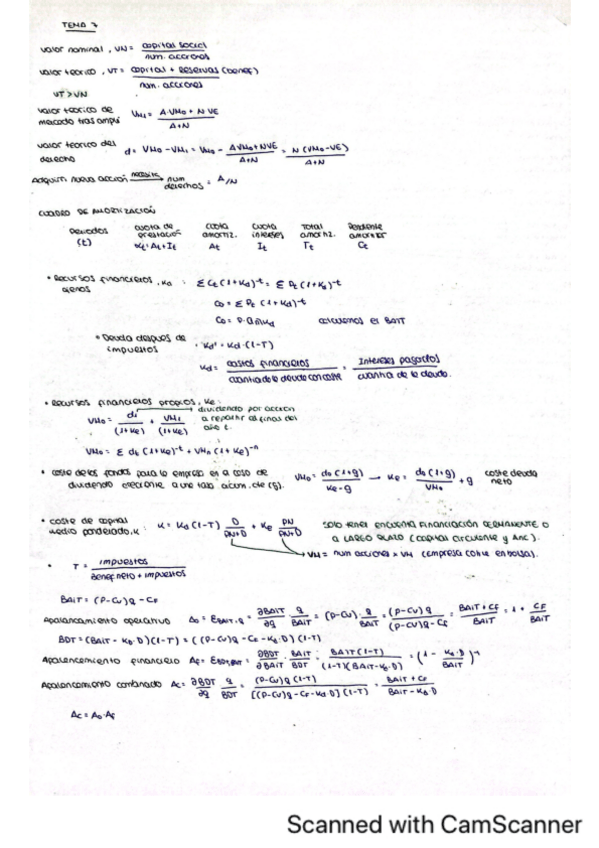 TEMA 7
valor nominal, VN = capital social / num. acciones
valor teórico, VT = capital + Reservas (benef) / num. acciones
VT > VN
valor teórico de mercado tras ampli VM1 = A·VM0 + N VE / A+N
valor teórico del derecho d = VM0 - VM1 = VM0 - AVM0+NVE / A+N = N (VM0-VE) / A+N
Adquirir nueva acción necesito num derechos = A/N
CUADRO DE AMORTIZACIÓN
Periodos (t) cuota de prestación αt = At + It cuota amortiz. At cuota intereses It Total amortiz. Tt Pendiente amortizar Ct
• Recursos financieros ajenos, Kd : Σ Ct (1+Kd)^-t = Σ Pt (1+Kd)^-t
C0 = Σ Pt (1+Kd)^-t
C0 = P·an|Kd calculamos el BAIT
• Deuda después de impuestos · Kd' = Kd·(1-T)
Kd = costes financieros / cuantía de la deuda con coste = Intereses pagados / cuantía de la deuda.
• Recursos financieros propios, Ke :
dividendo por acción a repartir al final del año t.
VM0 = d1 / (1+Ke) + VM1 / (1+Ke)
VM0 = Σ dt (1+Ke)^-t + VMn (1+Ke)^-n
• coste de los fondos para la empresa en el caso de dividendo creciente a una tasa acum. cte (g). VM0 = d0 (1+g) / Ke-g → Ke = d0 (1+g) / VM0 + g coste deuda neto
• coste de capital medio ponderado, K : K = Kd (1-T) D / PN+D + Ke PN / PN+D
solo tener en cuenta financiación PERMANENTE o a LARGO PLAZO (capital circulante y Anc).
→ VM = num acciones × VM (empresa cotiza en bolsa).
• T = impuestos / Benef neto + impuestos
BAIT = (P-Cv)q - CF
Apalancamiento operativo A0 = EBAIT,q = ∂BAIT / ∂q · q / BAIT = (P-Cv)· q / BAIT = (P-Cv)q / (P-Cv)q-CF = BAIT + CF / BAIT = 1 + CF / BAIT
BDT = (BAIT - Kd·D)(1-T) = ((P-Cv)q - CF - Kd·D)(1-T)
Apalancamiento financiero Af = EBDT,BAIT = ∂BDT / ∂BAIT · BAIT / BDT = BAIT(1-T) / (1-T)(BAIT-Kd·D) = (1 - Kd·D / BAIT)^-1
Apalancamiento combinado Ac = ∂BDT / ∂q · q / BDT = (P-Cv)q(1-T) / [(P-Cv)q-CF-Kd·D](1-T) = BAIT + CF / BAIT - Kd·D
Ac = A0·Af
Scanned with CamScanner